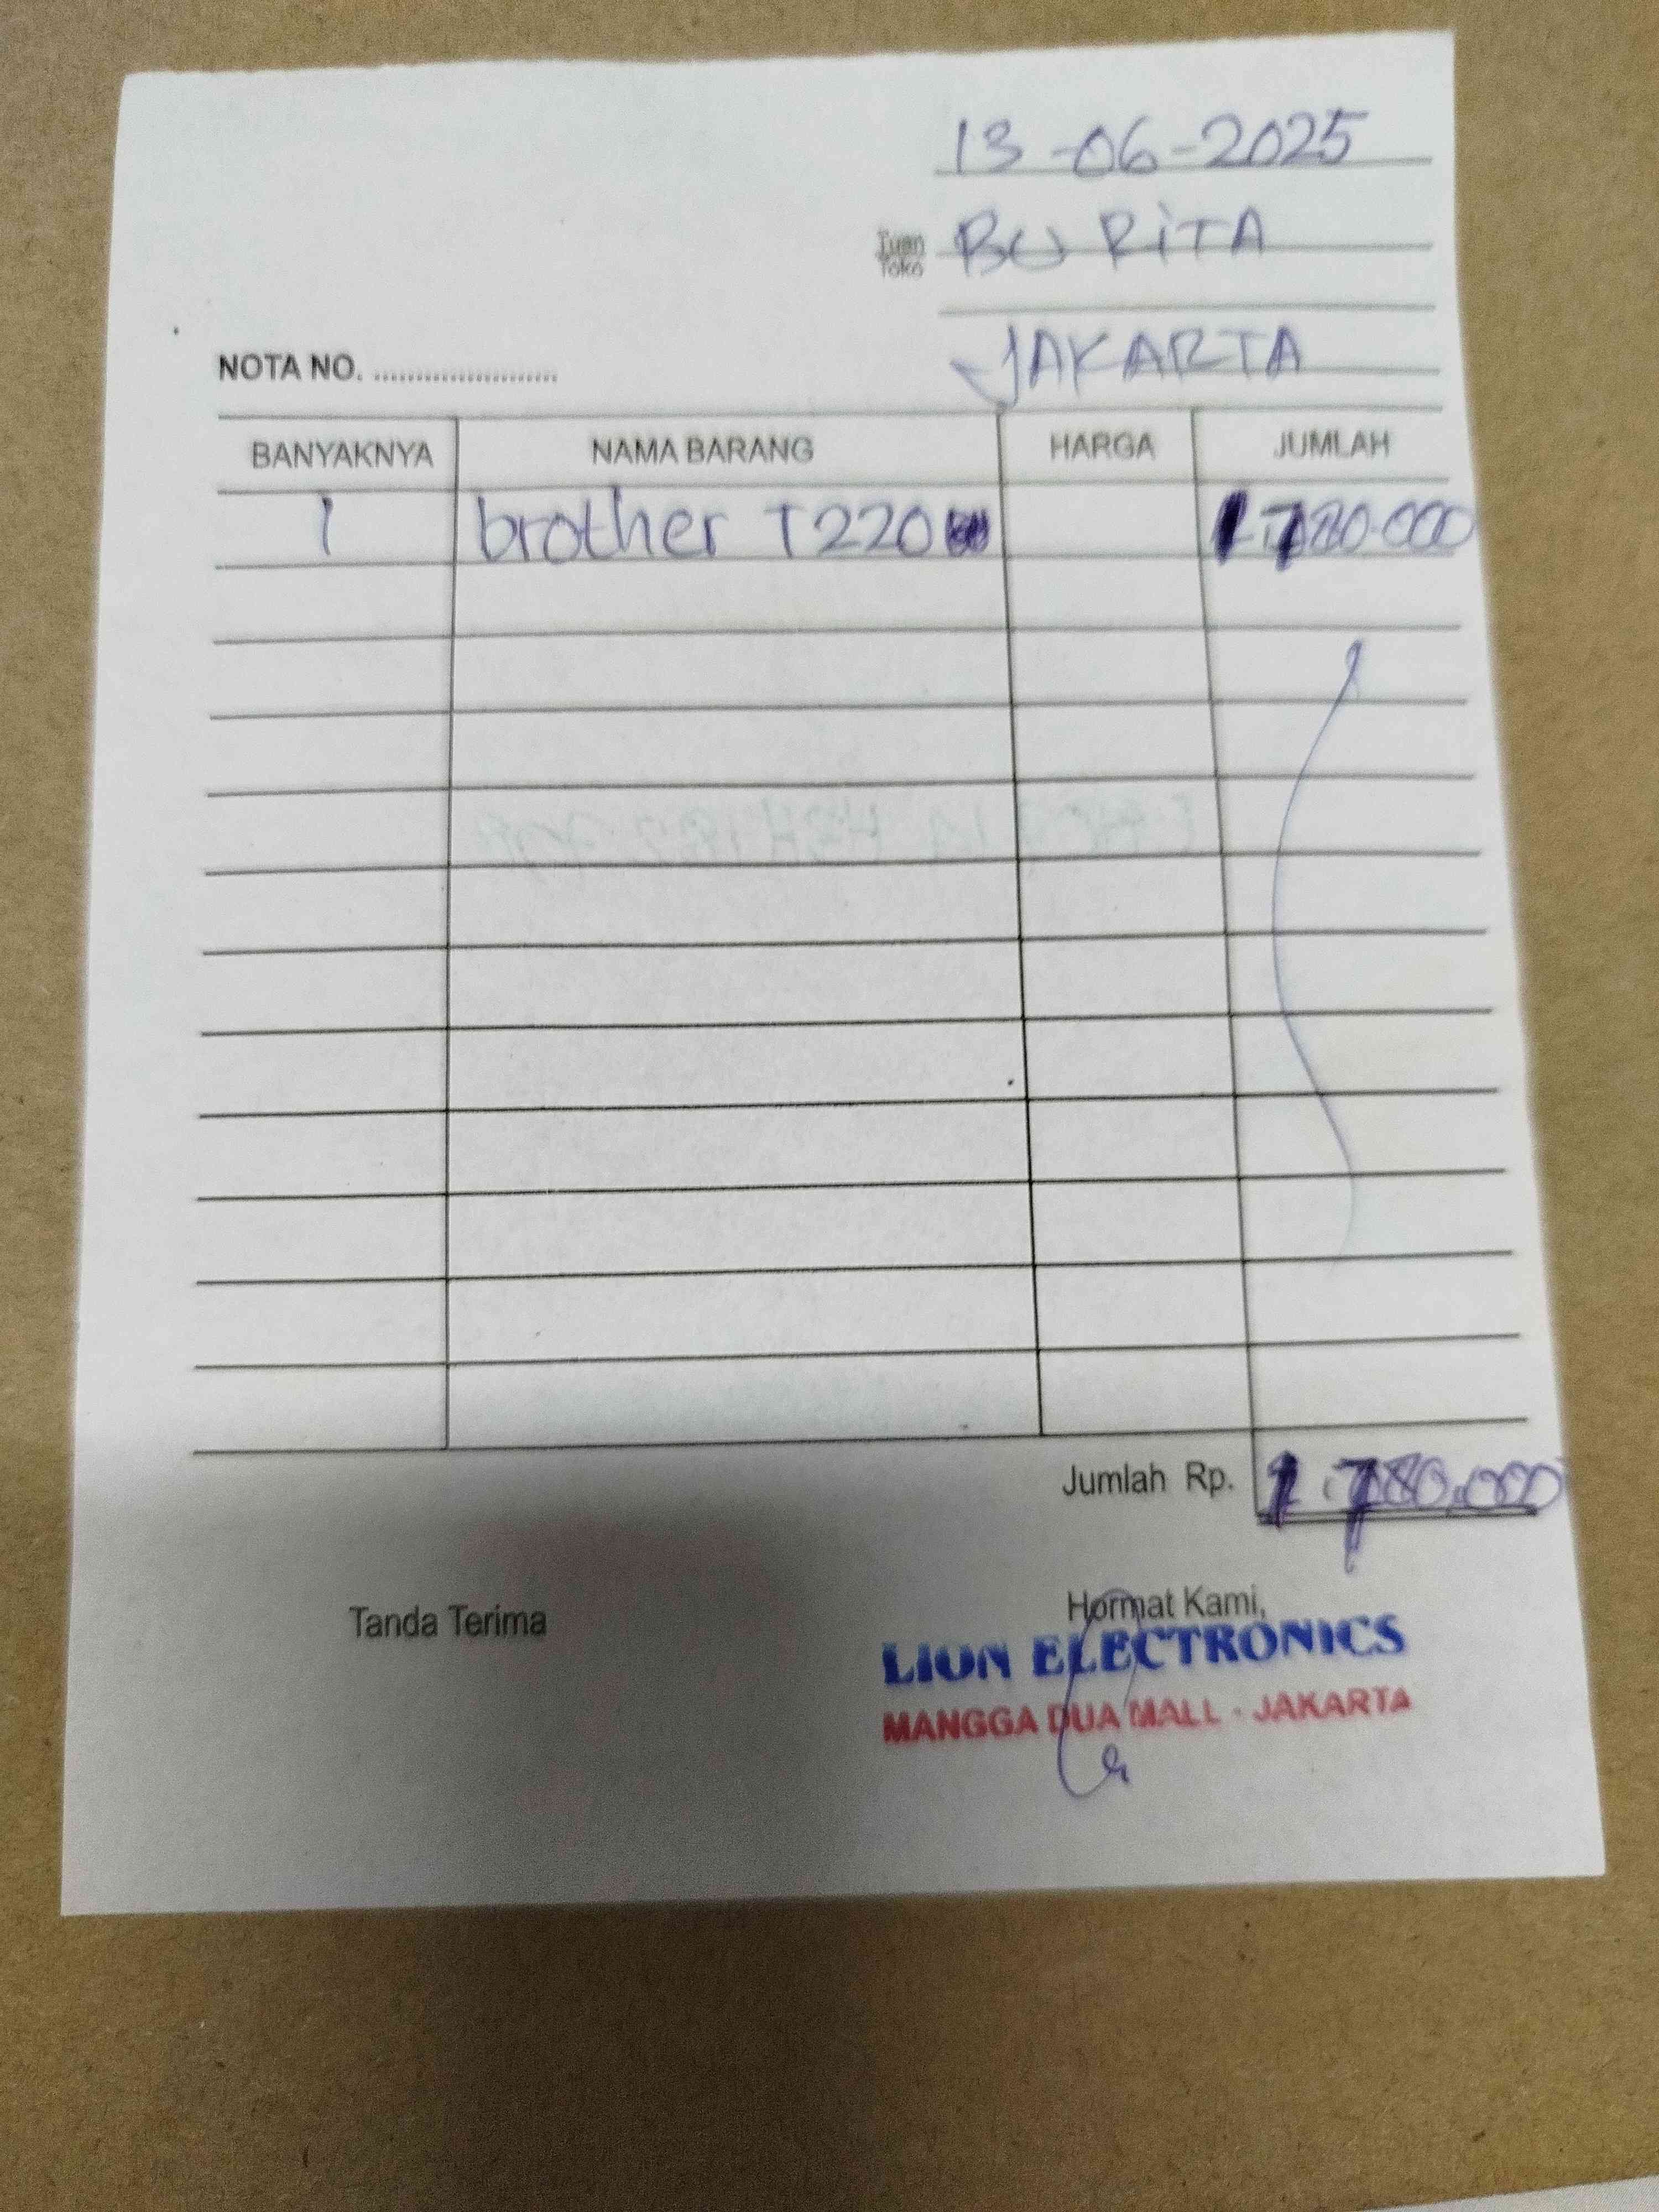 13-06-2025
Tuan
Toko
BU RiTA
JAKARTA
NOTA NO. ......................
BANYAKNYA NAMA BARANG HARGA JUMLAH
1 brother T220 1.780.000
Jumlah Rp. 1.780.000
Tanda Terima Hormat Kami,
LION ELECTRONICS
MANGGA DUA MALL - JAKARTA